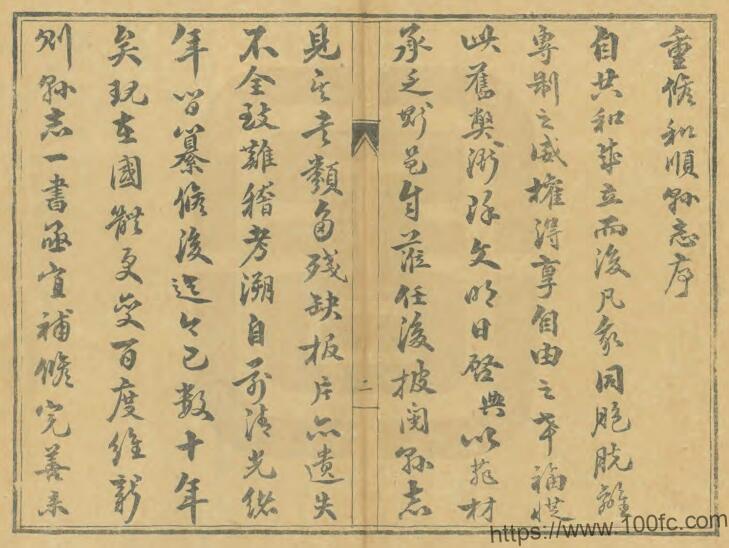 重修和順縣志序
自共和成立而後凡我同胞脫離
專制之威權得享自由之幸福從
此舊獘漸除文明日啓典以菲材
承乏斯邑自蒞任後披閱縣志
見其類多殘缺板片亦遺失
不全致難稽考溯自前清光緒
年間纂修後迄今已數十年
矣現在國體更變百度維新
則縣志一書亟宜補修完善
二
https://www.100fc.com